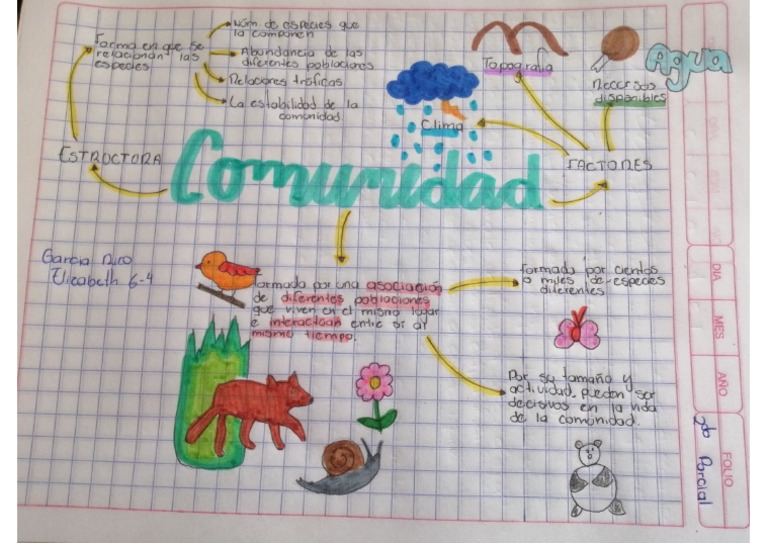 Forma en que se
relacionan las
especies
Núm. de especies que
la componen
Abundancia de las
diferentes poblaciones
Relaciones tróficas
La estabilidad de la
comunidad.
Topografia
Agua
Recursos
disponibles
Clima
ESTRUCTURA
Comunidad
FACTORES
Garcia Nico
Elizabeth 6-4
formada por una asociación
de diferentes poblaciones
que viven en el mismo lugar
e interactúan entre si al
mismo tiempo.
formada por cientos
o miles de especies
diferentes
Por su tamaño y
actividad, pueden ser
decisivos en la vida
de la comunidad.
DIA
MES
AÑO
FOLIO
2do Parcial